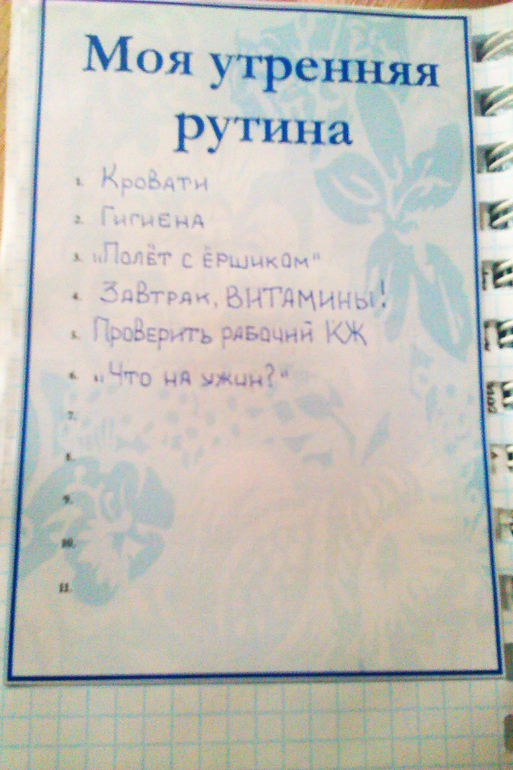 Моя утренняя
рутина
1. Кровати
2. Гигиена
3. „Полёт с ёршиком"
4. Завтрак, ВИТАМИНЫ!
5. Проверить рабочий КЖ
6. „Что на ужин?"
7.
8.
9.
10.
11.